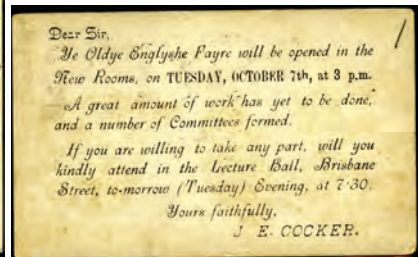 Dear Sir,
Ye Oldye Englyshe Fayre will be opened in the
New Rooms, on TUESDAY, OCTOBER 7th, at 3 p.m.
A great amount of work has yet to be done,
and a number of Committees formed.
If you are willing to take any part, will you
kindly attend in the Lecture Hall, Brisbane
Street, to-morrow (Tuesday) Evening, at 7·30.
Yours faithfully,
J. E. COCKER.